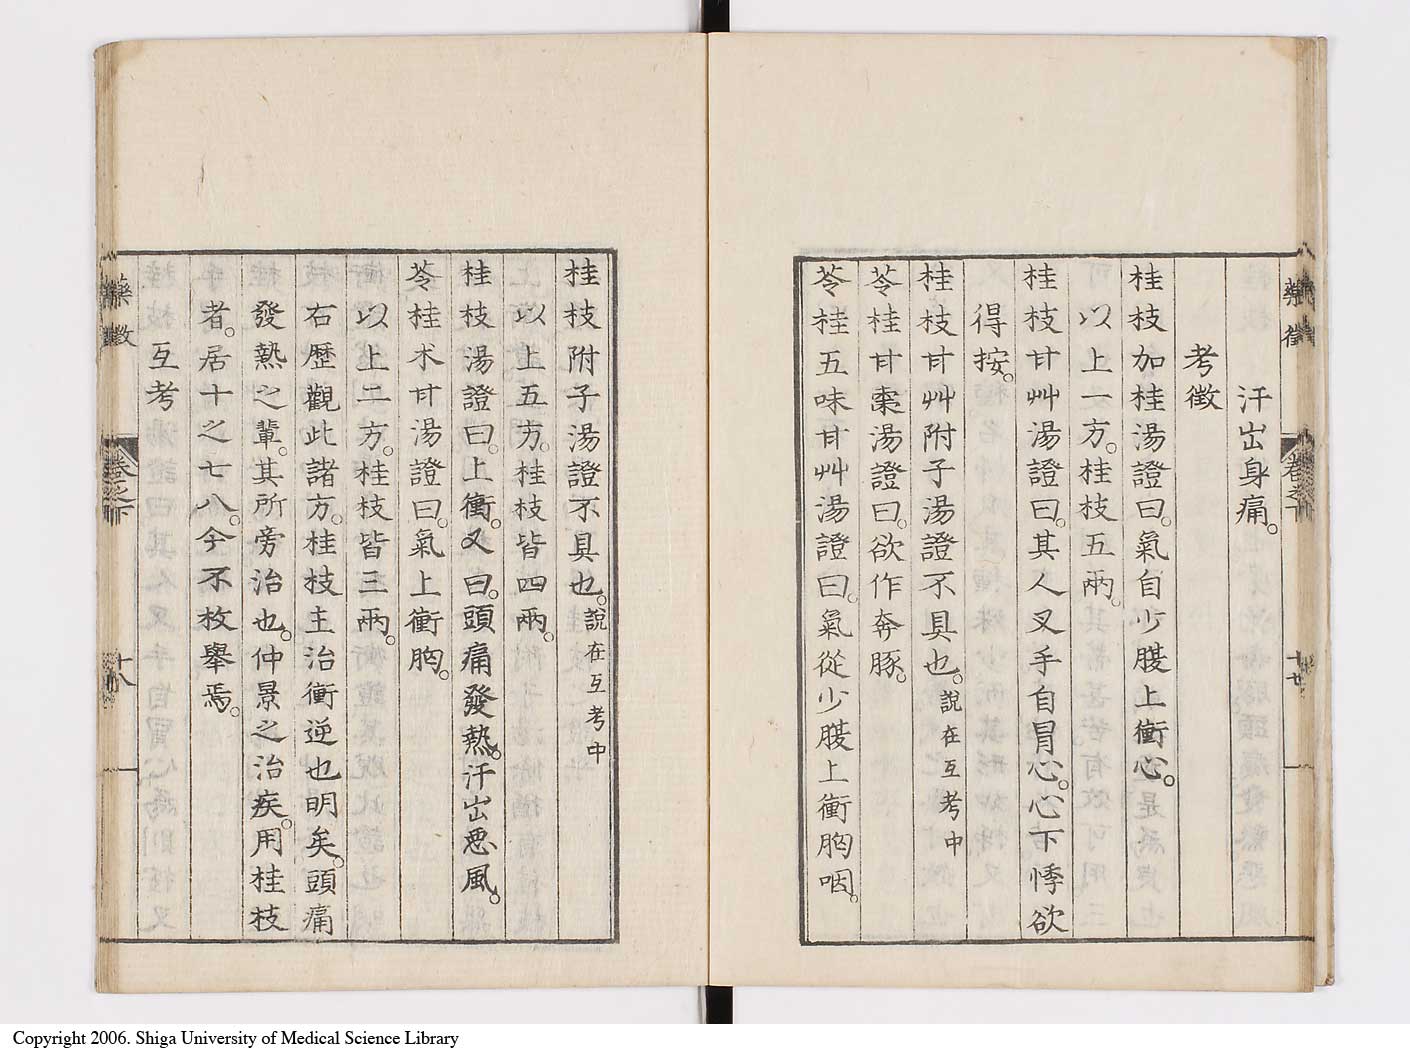 汗出身痛。
考徵
桂枝加桂湯證曰。氣自少腹上衝心。
以上一方。桂枝五兩。
桂枝甘艸湯證曰。其人叉手自冒心。心下悸欲
得按。
桂枝甘艸附子湯證不具也。說在互考中
苓桂甘棗湯證曰。欲作奔豚。
苓桂五味甘艸湯證曰。氣從少腹上衝胸咽。
桂枝附子湯證不具也。說在互考中
以上五方。桂枝皆四兩。
桂枝湯證曰。上衝。又曰。頭痛發熱。汗出惡風。
苓桂朮甘湯證曰。氣上衝胸。
以上二方。桂枝皆三兩。
右歷觀此諸方。桂枝主治衝逆也明矣。頭痛
發熱之輩。其所旁治也。仲景之治疾。用桂枝
者。居十之七八。今不枚舉焉。
互考
藥徵
卷之下
十八
Copyright 2006. Shiga University of Medical Science Library